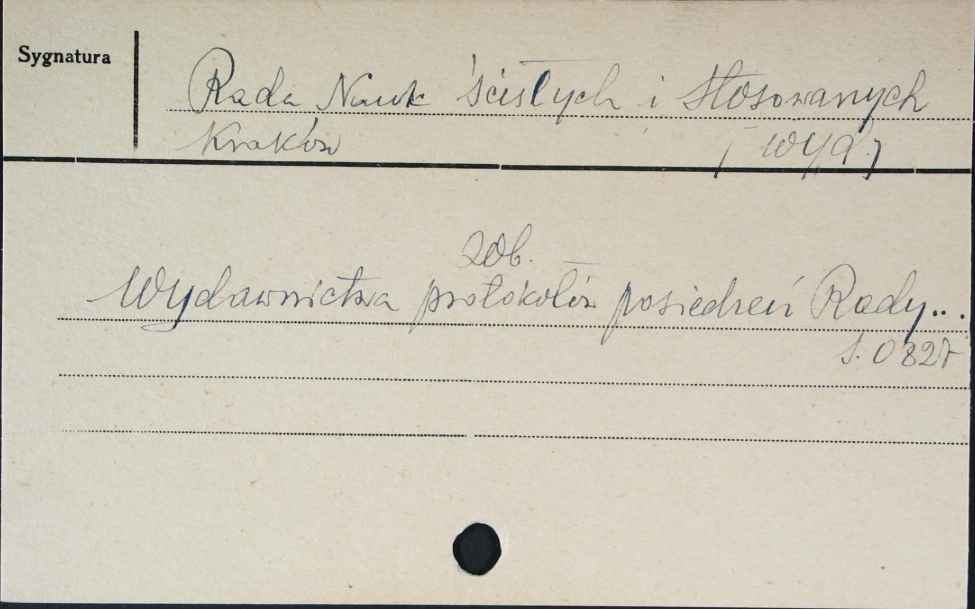 Sygnatura
Rada Nauk Ścisłych i Stosowanych
Kraków [wyd.]
zob.
Wydawnictwa protokółów posiedzeń Rady...
S. 0827